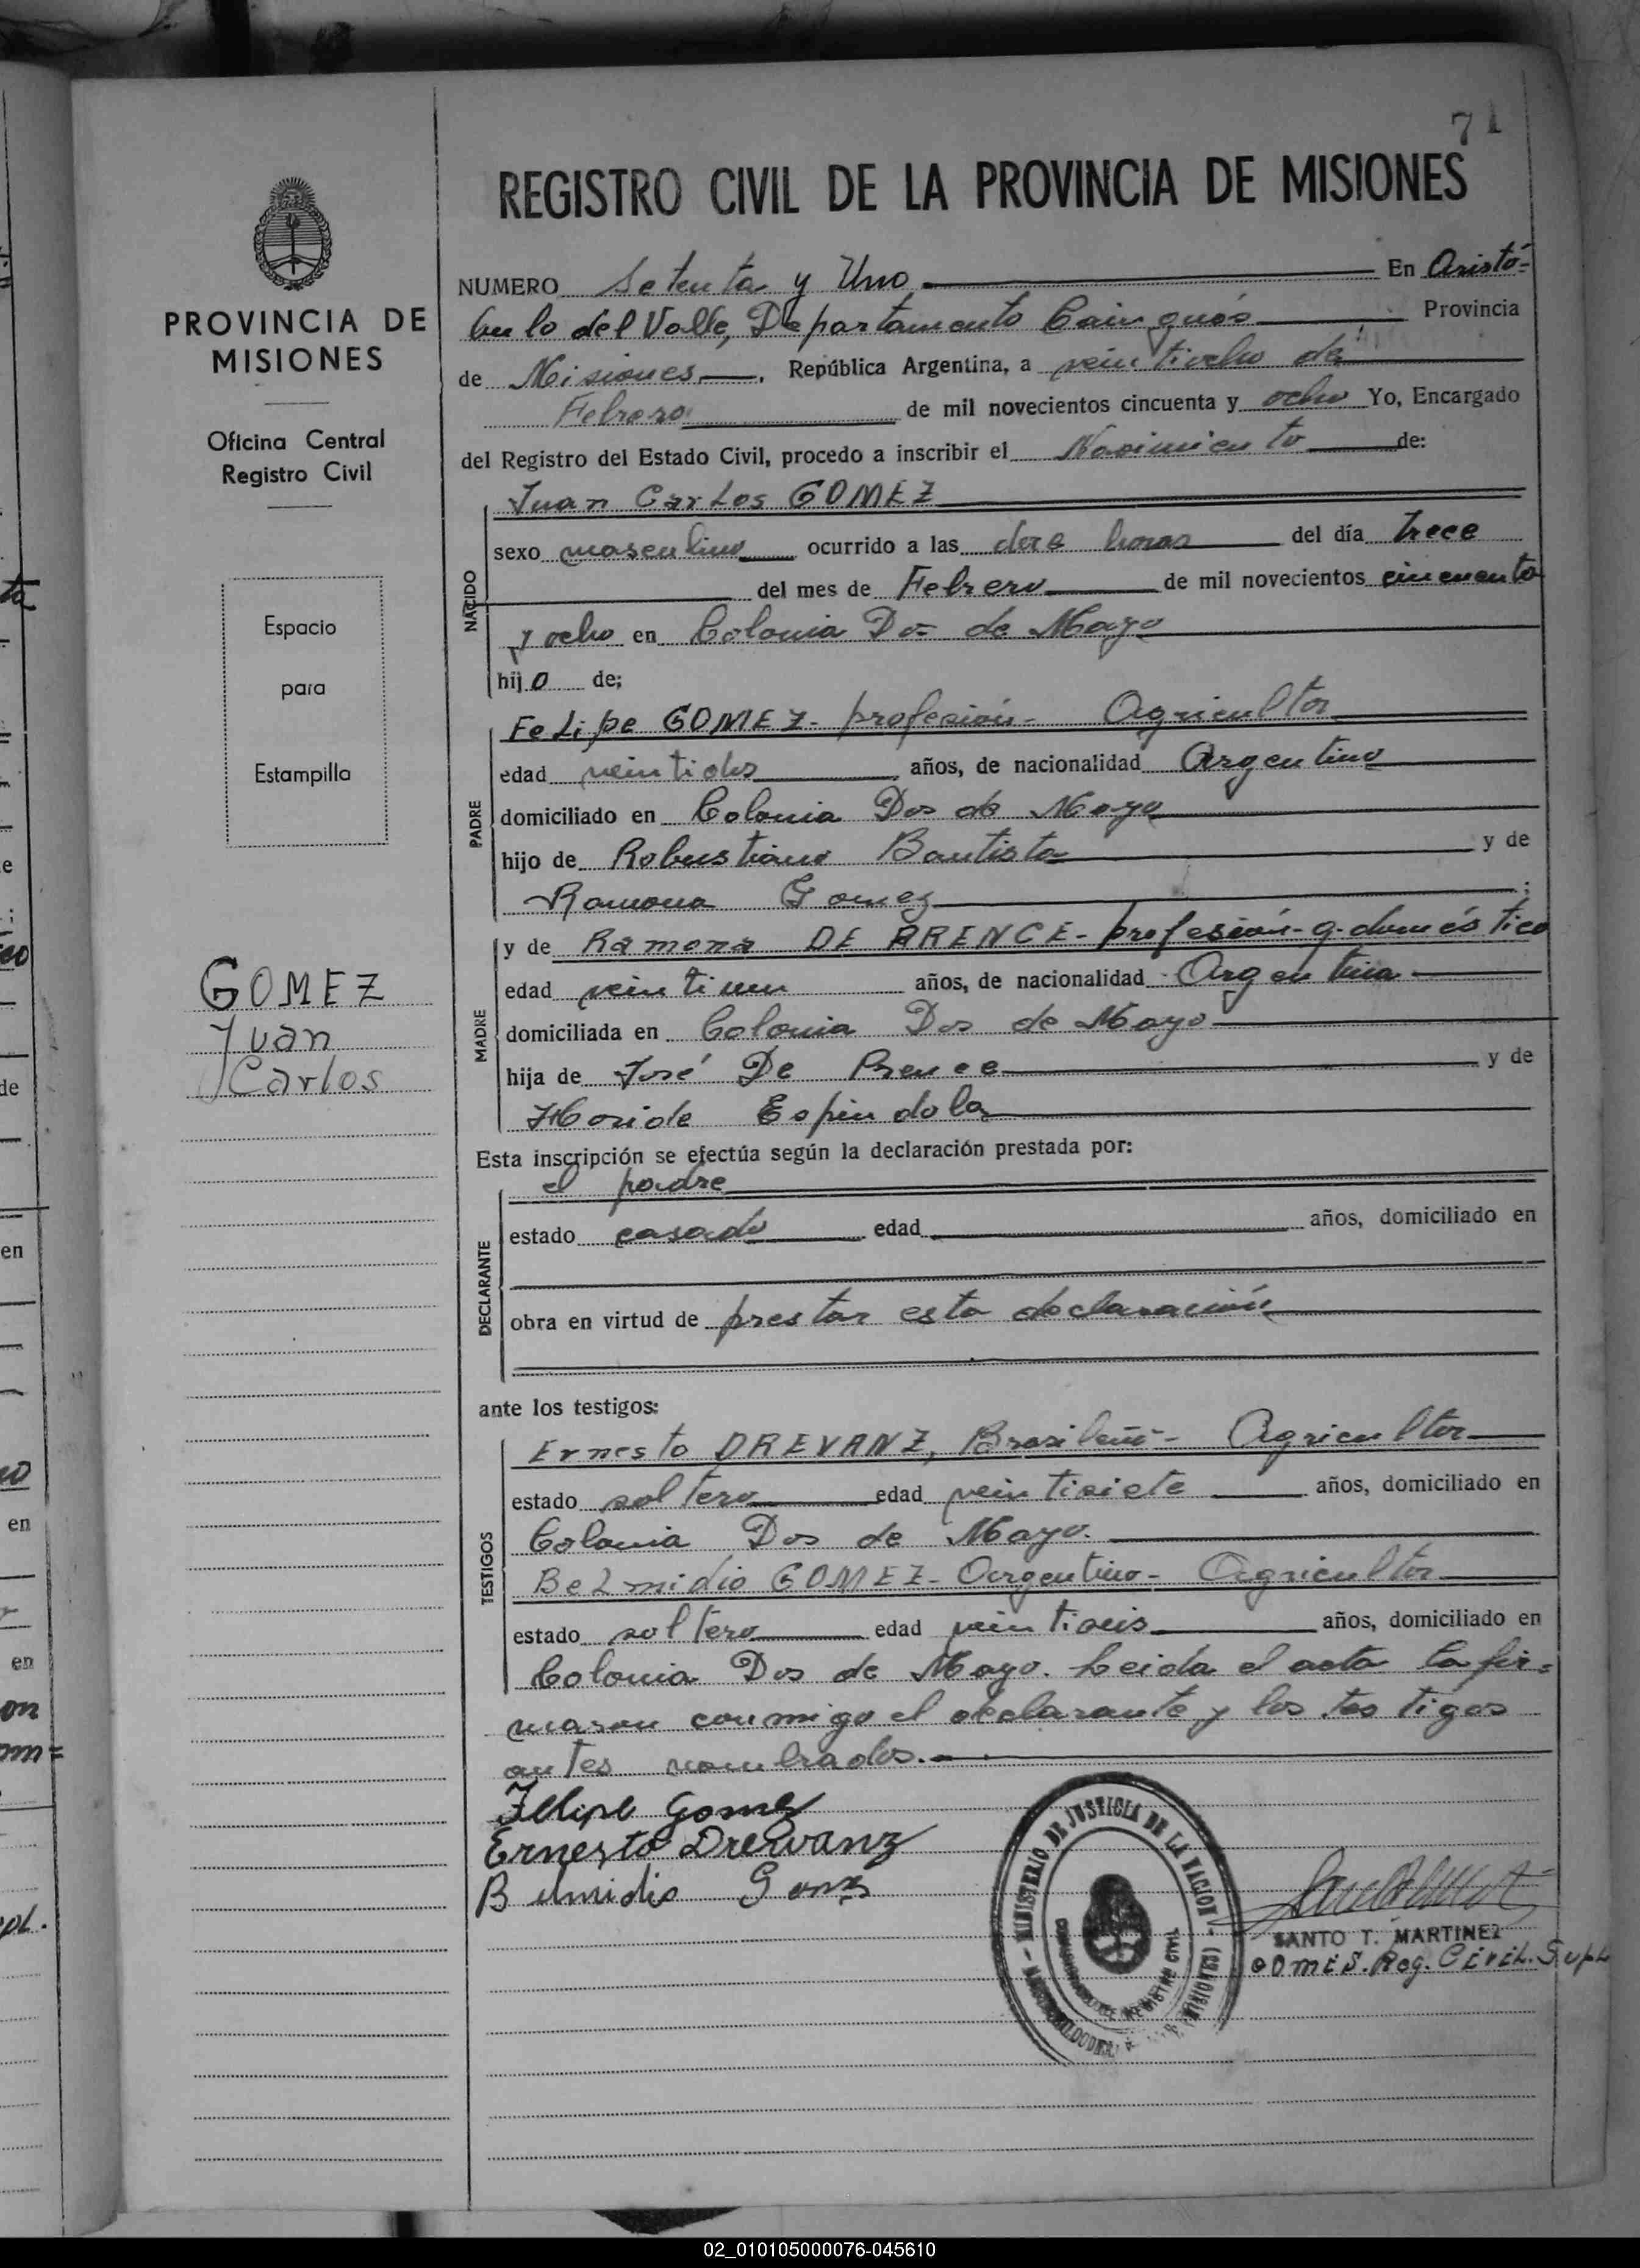 71
REGISTRO CIVIL DE LA PROVINCIA DE MISIONES
PROVINCIA DE
MISIONES
Oficina Central
Registro Civil
Espacio
para
Estampilla
GOMEZ
Juan
Carlos
NUMERO Setenta y Uno En Aristó-
bulo del Valle, Departamento Cainguás Provincia
de Misiones, República Argentina, a veintiocho de
Febrero de mil novecientos cincuenta y ocho Yo, Encargado
del Registro del Estado Civil, procedo a inscribir el Nacimiento de:
NACIDO
Juan Carlos GOMEZ
sexo masculino ocurrido a las doce horas del día trece
del mes de Febrero de mil novecientos cincuenta
y ocho en Colonia Dos de Mayo
hijo de;
PADRE
Felipe GOMEZ- profesión- Agricultor
edad veintidos años, de nacionalidad Argentino
domiciliado en Colonia Dos de Mayo
hijo de Robustiano Bautista y de
Ramona Gomez;
MADRE
y de Ramona DE ARENCE- profesión- q. doméstico
edad veintiun años, de nacionalidad Argentina
domiciliada en Colonia Dos de Mayo
hija de José De Arence y de
Espindola
Esta inscripción se efectúa según la declaración prestada por:
DECLARANTE
el padre
estado casado edad años, domiciliado en
obra en virtud de prestar esta declaración
ante los testigos:
TESTIGOS
Ernesto DREVANZ, Brasileño- Agricultor
estado soltero edad veintisiete años, domiciliado en
Colonia Dos de Mayo.
Belmidio GOMEZ- Argentino- Agricultor
estado soltero edad veintiseis años, domiciliado en
Colonia Dos de Mayo. Leida el acta la fir=
maron conmigo el declarante y los testigos
antes nombrados.
Felipe Gomez
Ernesto Drewanz
Belmidio Gomz
MINISTERIO DE JUSTICIA DE LA NACION
REGISTRO CIVIL
(MISIONES)
SANTO T. MARTINEZ
Comis. Reg. Civil. Supl
02_010105000076-045610